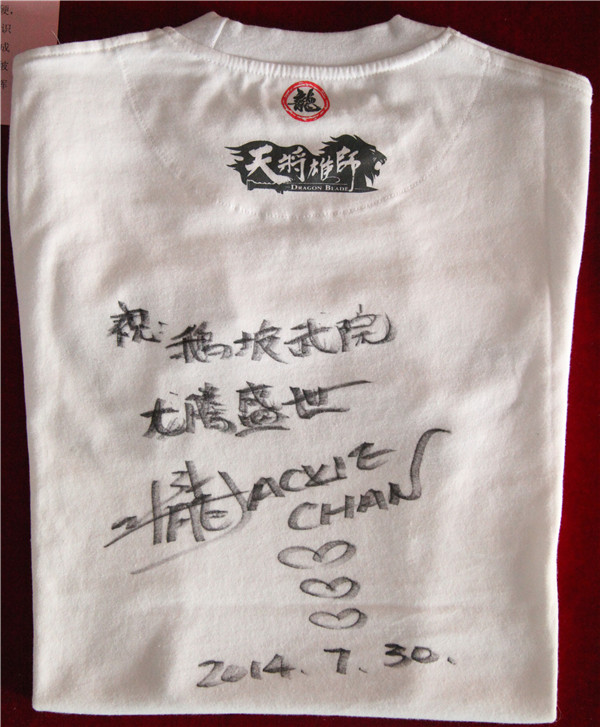 硬,
识
成
龍
天將雄師
DRAGON BLADE
祝:鹅坡武院
龙腾盛世
JACKIE
CHAN
2014.7.30.